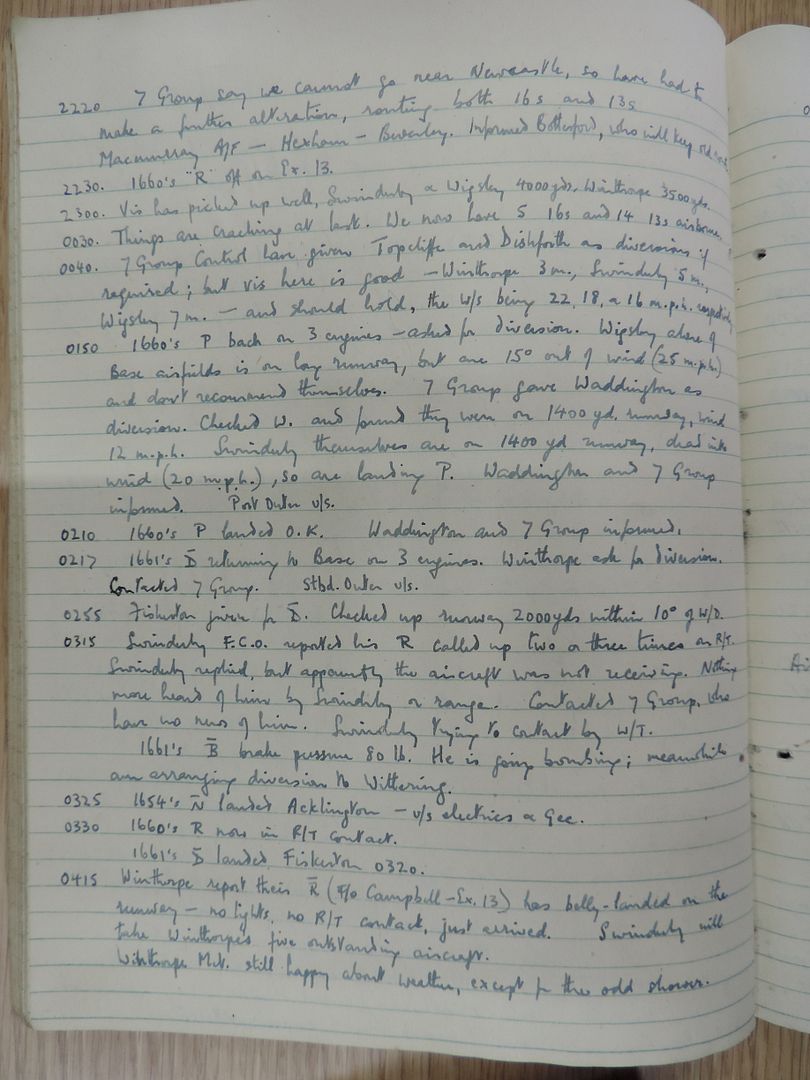 2220 7 Group say we cannot go near Newcastle, so have had to
make a further alteration, routing both 16s and 13s
Macmurray A/F — Hexham — Beverley. Informed Bottesford, who will keep old
2230. 1660's "R" off on Ex. 13.
2300. Vis has picked up well, Swinderby & Wigsley 4000 yds. Winthorpe 3500 yds.
0030. Things are cracking at last. We now have 5 16s and 14 13s airborne.
0040. 7 Group Control have given Topcliffe and Dishforth as diversions if
required; but vis here is good — Winthorpe 3 m., Swinderby 5 m.,
Wigsley 7 m. — and should hold, the w/s being 22, 18, & 16 m.p.h. respectively
0150 1660's P back on 3 engines — asked for diversion. Wigsley alone of
Base airfields is on long runway, but are 15° out of wind (25 m.p.h.)
and don't recommend themselves. 7 Group gave Waddington as
diversion. Checked W. and found they were on 1400 yd. runway, wind
12 m.p.h. Swinderby themselves are on 1400 yd runway, dead into
wind (20 m.p.h.), so are landing P. Waddington and 7 Group
informed. Port Outer u/s.
0210 1660's P landed O.K. Waddington and 7 Group informed.
0217 1661's D̄ returning to Base on 3 engines. Winthorpe ask for diversion.
Contacted 7 Group. Stbd. Outer u/s.
0255 Fiskerton given for D̄. Checked up runway 2000yds within 10° of W/D.
0315 Swinderby F.C.O. reported his R called up two or three times on R/T.
Swinderby replied, but apparently the aircraft was not receiving. Nothing
more heard of him by Swinderby or range. Contacted 7 Group, who
have no news of him. Swinderby trying to contact by W/T.
1661's B̄ brake pressure 80 lb. He is going bombing; meanwhile
am arranging diversion to Wittering.
0325 1654's N̄ landed Acklington — u/s electrics & Gee.
0330 1660's R now in R/T contact.
1661's D̄ landed Fiskerton 0320.
0415 Winthorpe report their R̄ (F/o Campbell – Ex. 13) has belly-landed on the
runway — no lights, no R/T contact, just arrived. Swinderby will
take Winthorpe's five outstanding aircraft.
Winthorpe Met. still happy about weather, except for the odd shower.